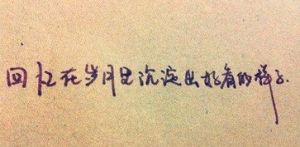 回忆在岁月里沉淀出好看的样子.